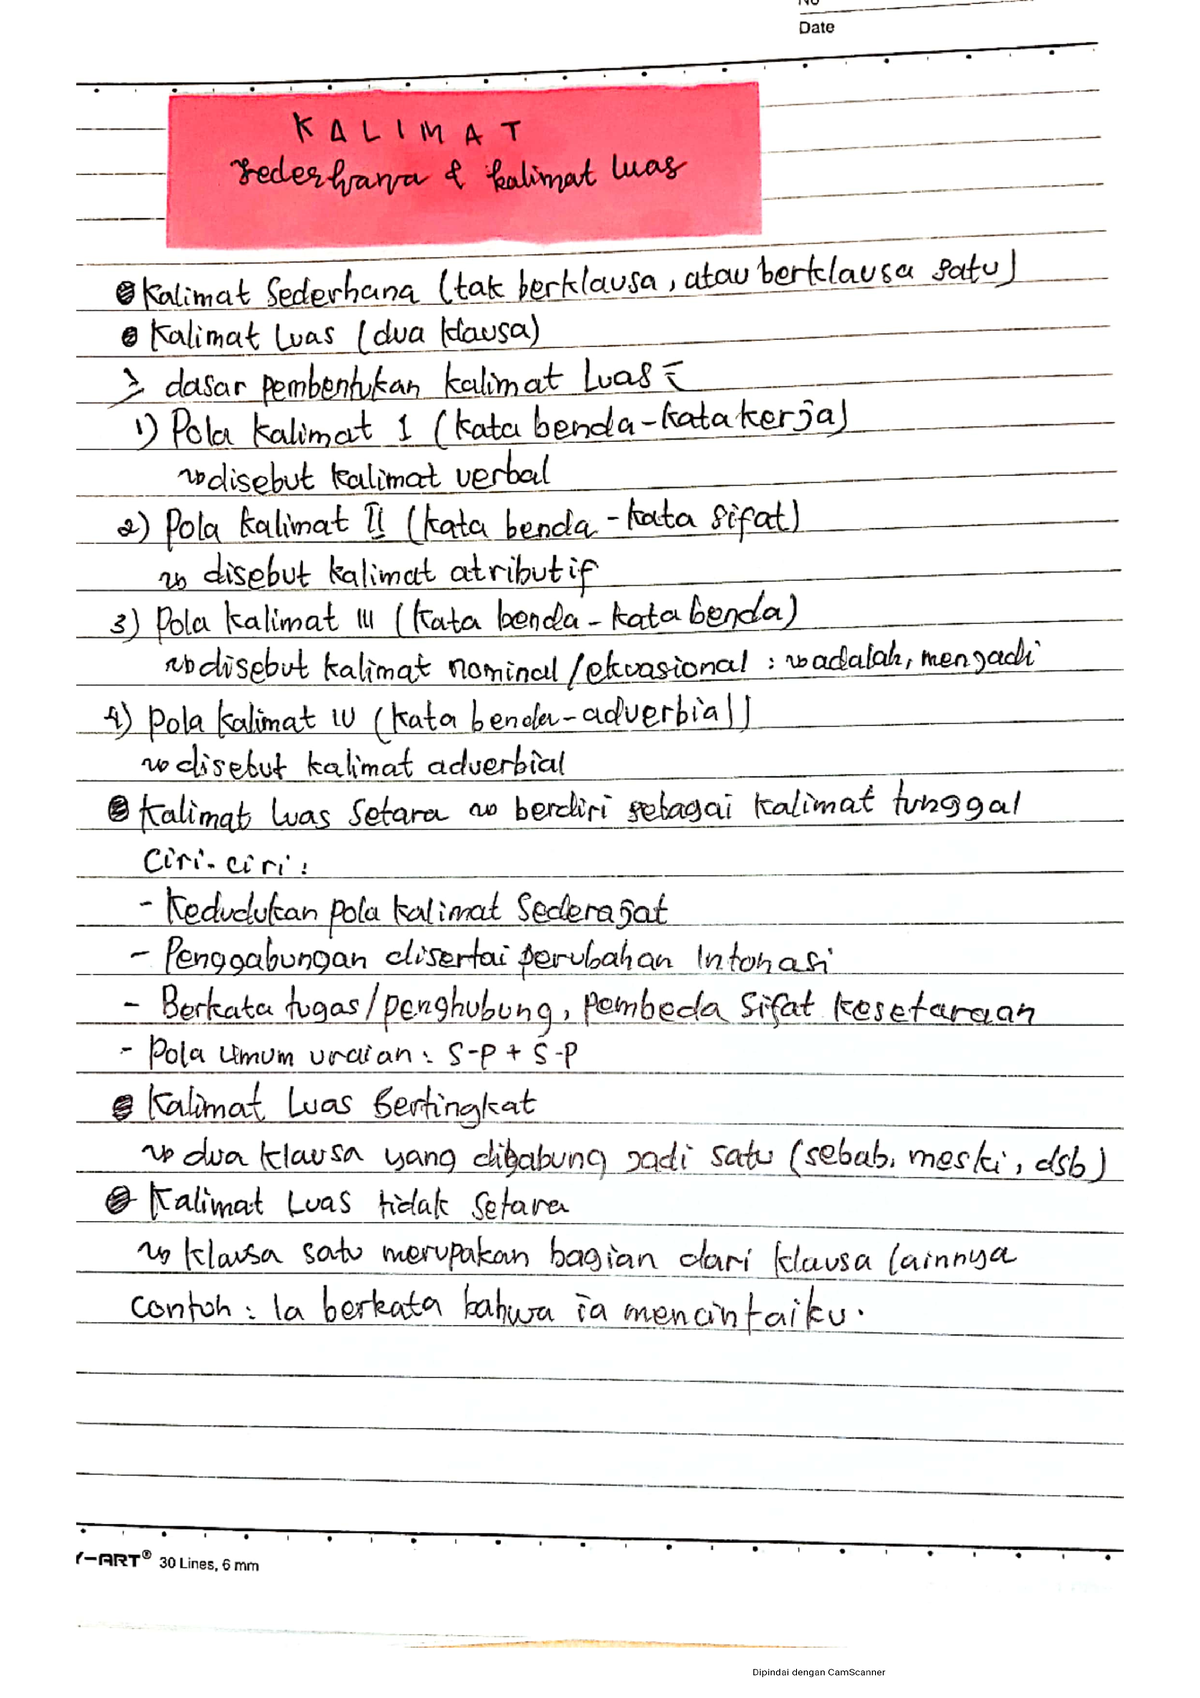 No
Date
KALIMAT
sederhana & kalimat luas
Kalimat Sederhana (tak berklausa, atau berklausa satu)
Kalimat Luas (dua klausa)
dasar pembentukan kalimat Luas =
1) Pola kalimat 1 (kata benda-kata kerja)
disebut kalimat verbal
2) Pola kalimat II (kata benda-kata sifat)
disebut kalimat atributif
3) Pola kalimat III (kata benda-kata benda)
disebut kalimat nominal/ekuasional : adalah, menjadi
4) Pola kalimat IV (kata benda-adverbial)
disebut kalimat adverbial
Kalimat Luas Setara berdiri sebagai kalimat tunggal
Ciri-ciri:
- Kedudukan pola kalimat Sederajat
- Penggabungan disertai perubahan Intonasi
- Berkata tugas/penghubung, pembeda Sifat kesetaraan
- Pola Umum uraian: S-P + S-P
Kalimat Luas Bertingkat
dua klausa yang digabung jadi satu (sebab, meski, dsb)
Kalimat Luas tidak Setara
klausa satu merupakan bagian dari klausa lainnya
Contoh: Ia berkata bahwa ia mencintaiku.
Y-ART® 30 Lines, 6 mm
Dipindai dengan CamScanner